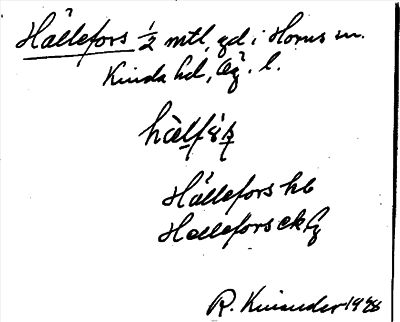 Hällefors 1/2 mtl, gd i Horns sn.
Kinda hd, Ög. l.
Hällefors hb
Hellefors ek
R. Kinander 19